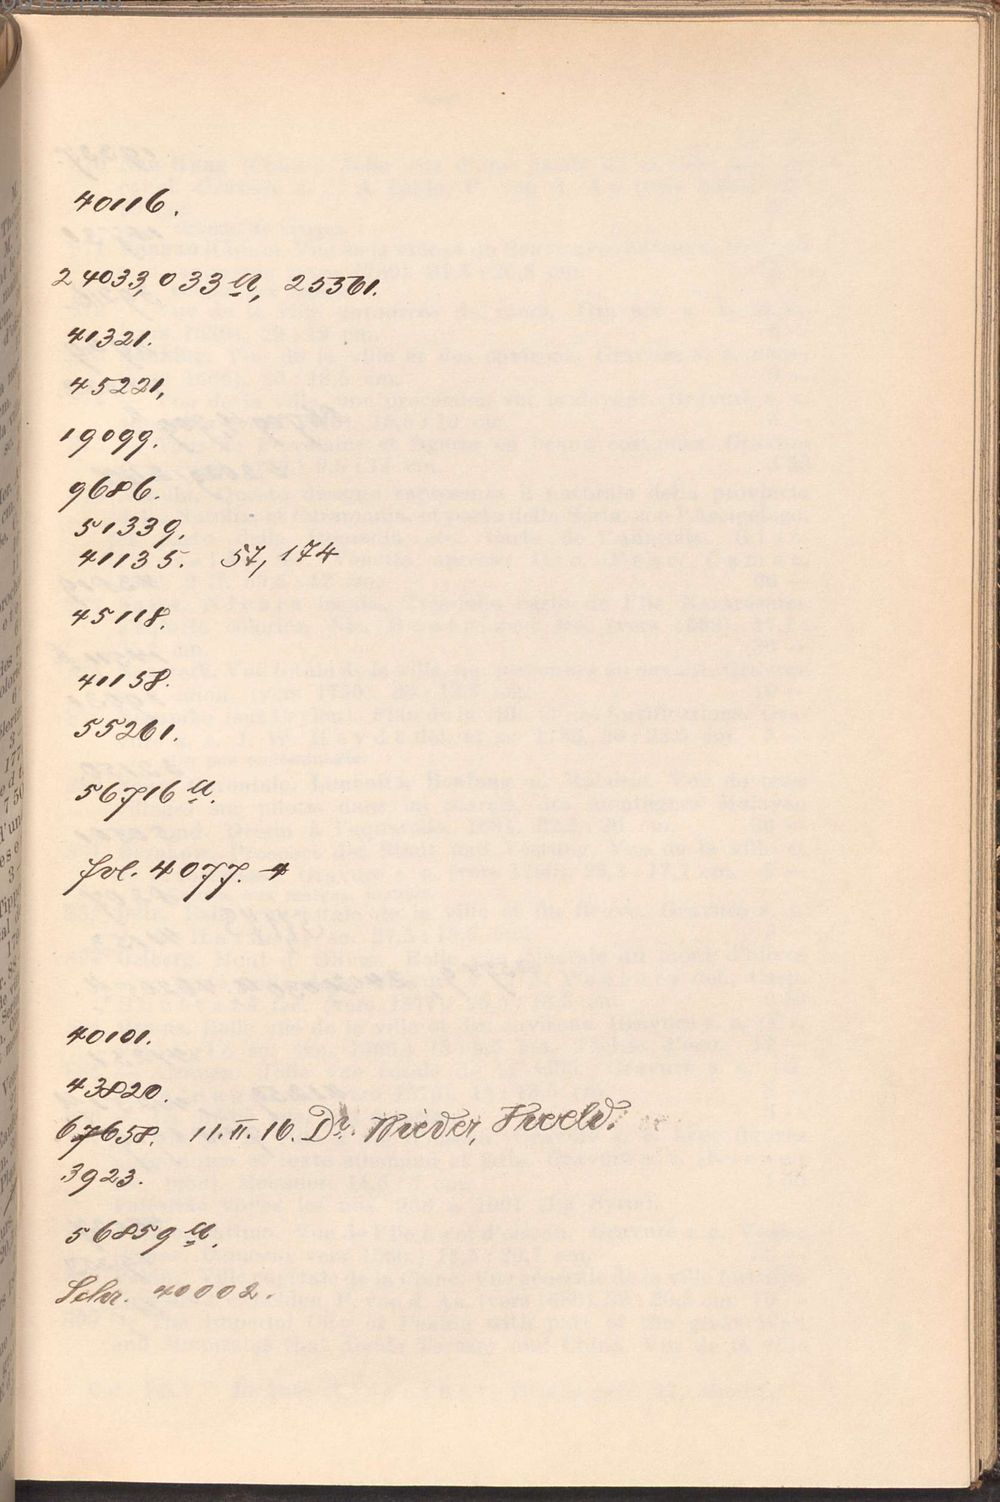 40116.
24033, 033 a, 25361.
41321.
45221,
19099.
9686.
51339.
41135. 57,174
45118.
41158.
55261.
56716 a.
fol. 4077. 4
40101.
43820.
67658. 11. II. 16. Dr.
3923.
56859 a.
Schr. 40002.